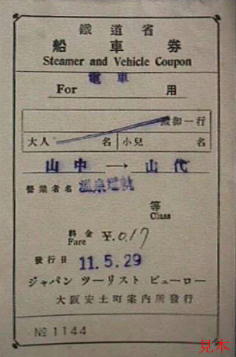 鐵道省
船車券
Steamer and Vehicle Coupon
電車
For 用
殿御一行
大人 名 小兒 名
山中 → 山代
營業者名 溫泉電軌
等
Class
料金
Fare ¥.0.17
發行日 11.5.29
ジャパン ツーリスト ビューロー
大阪安土町案内所發行
№ 1144
見本